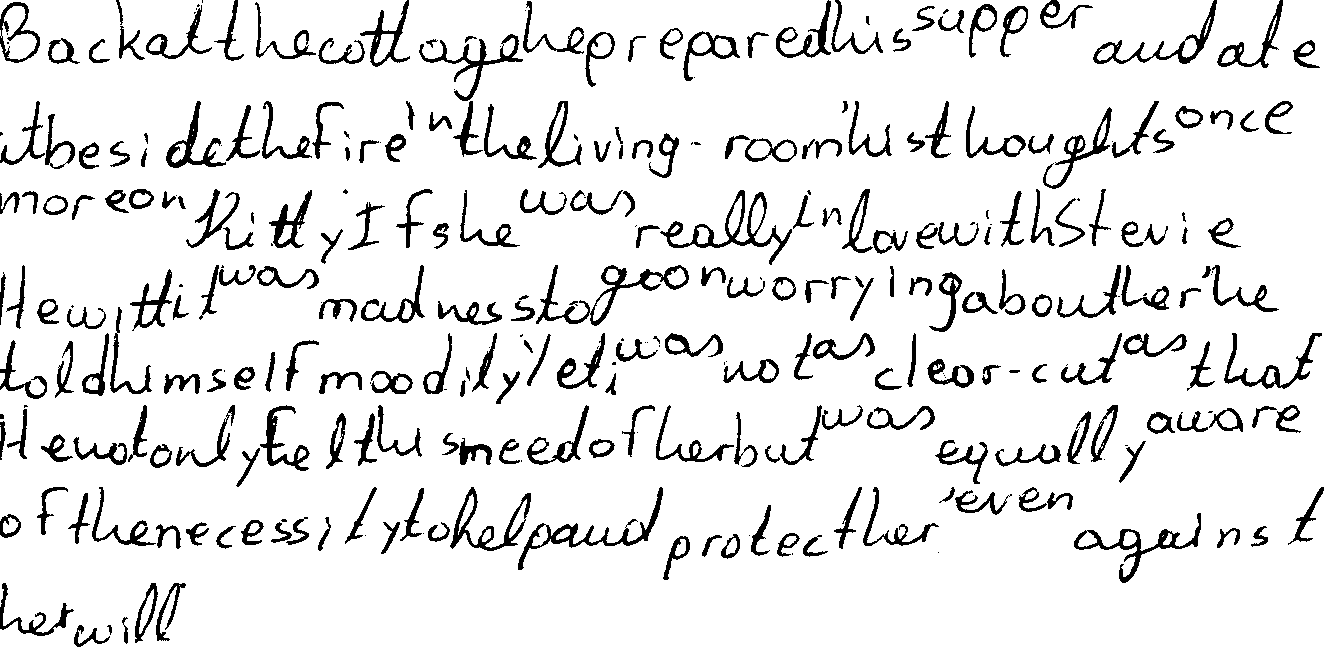 Back at the cottage he prepared his supper and ate
it beside the fire in the living-room his thoughts once
more on Kitty If she was really in love with Stevie
Hewitt it was madness to go on worrying about her he
told himself moodily Yet i was not as clear-cut as that
He not only felt his need of her but was equally aware
of the necessity to help and protect her even against
her will